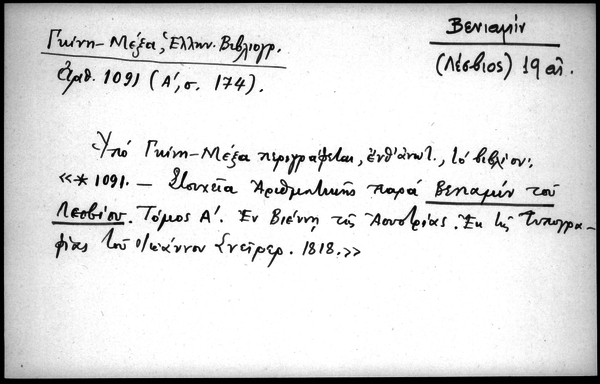 Γκίνη-Μέξα, Ἑλλην. Βιβλιογρ.
ἀριθ. 1091 (Α΄, σ. 174).
Βενιαμίν
(Λέσβιος) 19 αἰ.
Ὑπό Γκίνη-Μέξα περιγράφεται, ἔνθ' ἀνωτ., τό βιβλίον:
«* 1091. — Στοιχεῖα Ἀριθμητικῆς παρά Βενιαμίν τοῦ
Λεσβίου. Τόμος Α΄. Ἐν Βιέννῃ τῆς Αουστρίας. Ἐκ τῆς Τυπογρα-
φίας τοῦ Ἰωάννου Σνείρερ. 1818.»